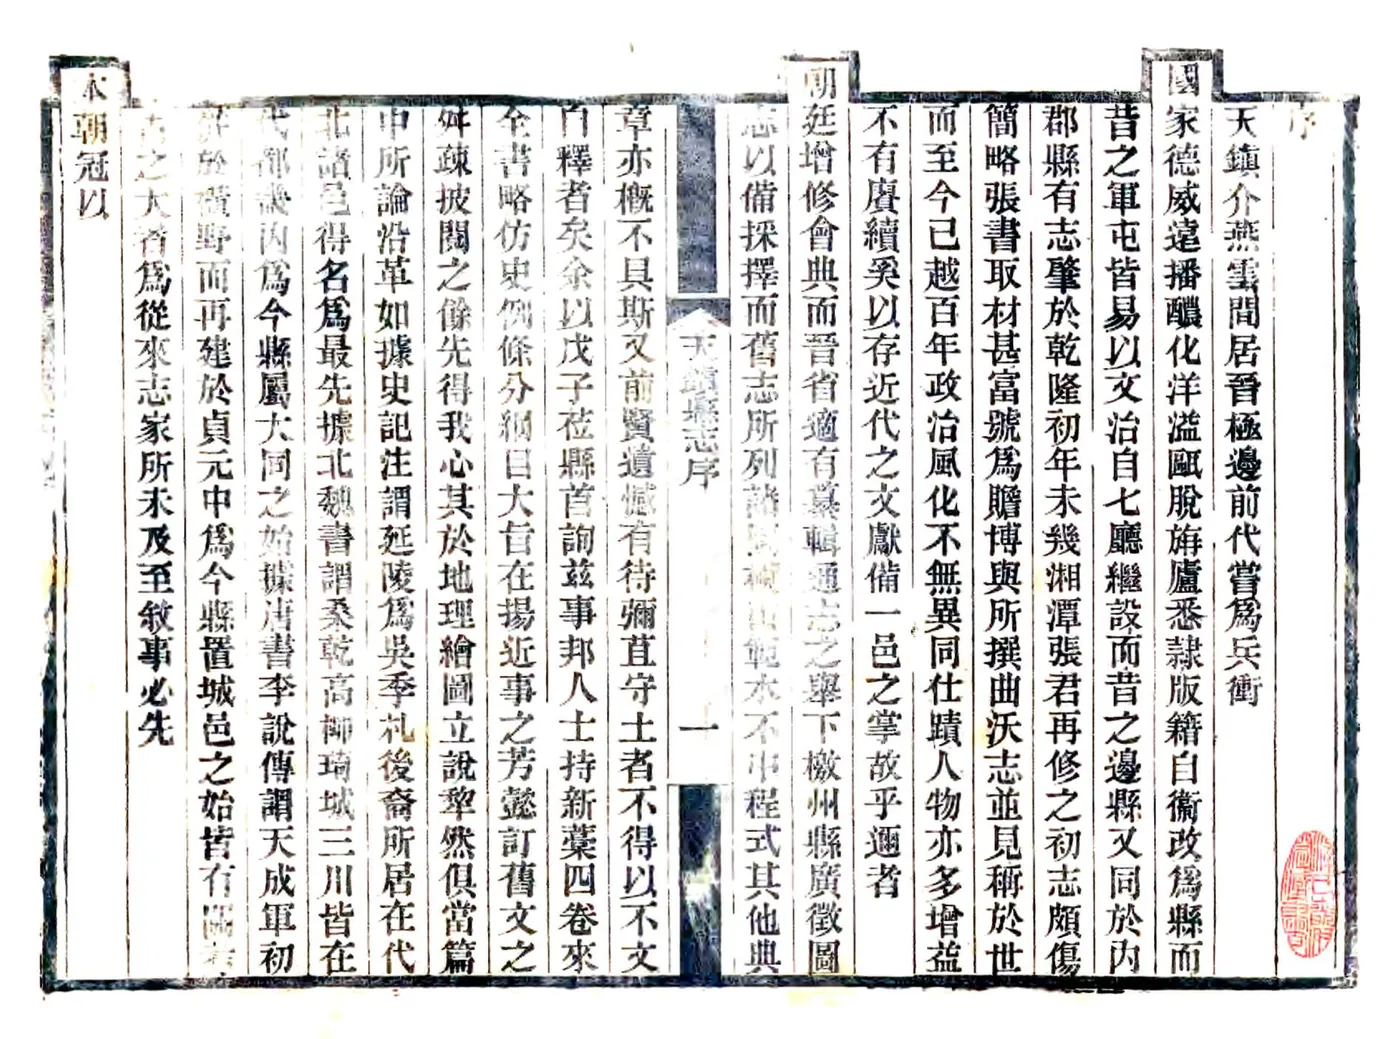 序
天鎮介燕雲間居晉極邊前代嘗爲兵衝
國家德威遠播醲化洋溢甌脫旃廬悉隷版籍自衞改爲縣而
昔之軍屯皆易以文治自七廳繼設而昔之邊縣又同於內
郡縣有志肇於乾隆初年未幾湘潭張君再修之初志頗傷
簡略張書取材甚富號爲贍博與所撰曲沃志並見稱於世
而至今已越百年政治風化不無異同仕蹟人物亦多增益
不有賡續奚以存近代之文獻備一邑之掌故乎邇者
朝廷增修會典而晉省適有纂輯通志之舉下檄州縣廣徵圖
志以備採擇而舊志所列諸圖 範水不中程式其他典
天鎮縣志序
一
章亦概不具斯又前賢遺憾有待彌苴守土者不得以不文
自釋者矣余以戊子莅縣首詢茲事邦人士持新藁四卷來
全書略仿史例條分綱目大旨在揚近事之芳懿訂舊文之
舛疎披閱之餘先得我心其於地理繪圖立說犂然俱當篇
中所論沿革如據史記注謂延陵爲吳季札後裔所居在代
北諸邑得名爲最先據北魏書謂桑乾高柳琦城三川皆在
代都畿內爲今縣屬大同之始據唐書李說傳謂天成軍初
於曠野而再建於貞元中爲今縣置城邑之始皆有關
古之大者爲從來志家所未及至敘事必先
本朝冠以